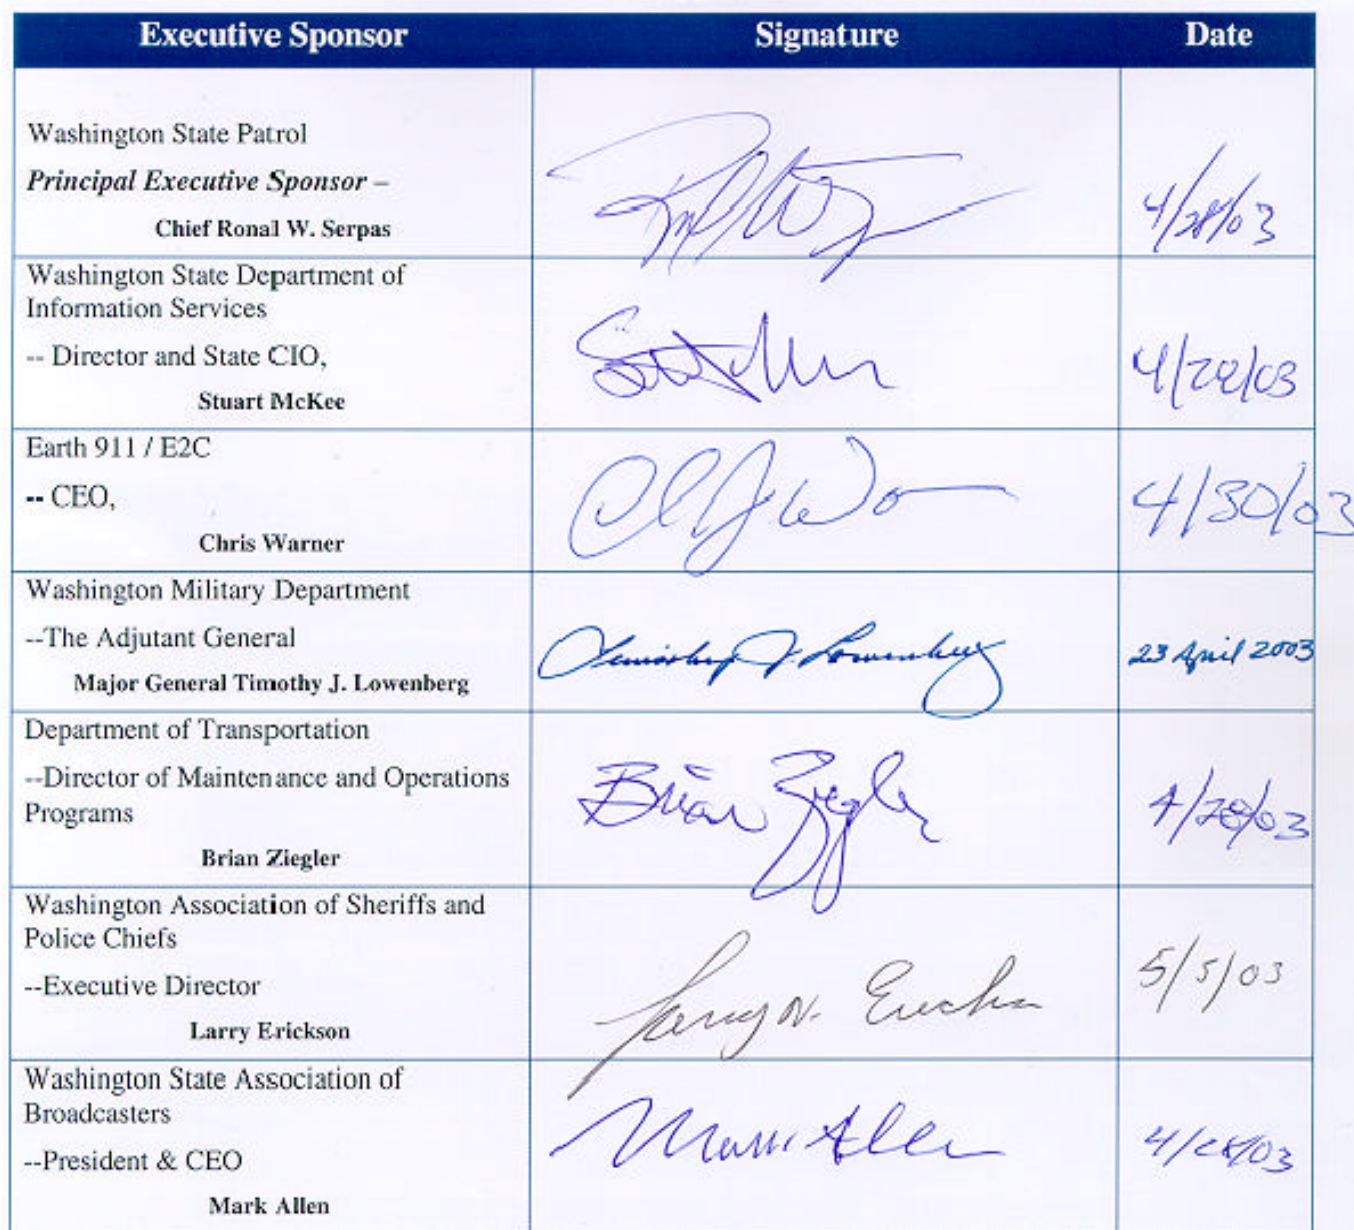 Executive Sponsor Signature Date
Washington State Patrol
Principal Executive Sponsor –
Chief Ronal W. Serpas
4/28/03
Washington State Department of
Information Services
-- Director and State CIO,
Stuart McKee
4/28/03
Earth 911 / E2C
-- CEO,
Chris Warner
4/30/03
Washington Military Department
--The Adjutant General
Major General Timothy J. Lowenberg
Timothy J. Lowenberg 23 April 2003
Department of Transportation
--Director of Maintenance and Operations
Programs
Brian Ziegler
Brian Ziegler 4/28/03
Washington Association of Sheriffs and
Police Chiefs
--Executive Director
Larry Erickson
Larry Erickson 5/5/03
Washington State Association of
Broadcasters
--President & CEO
Mark Allen
Mark Allen 4/28/03